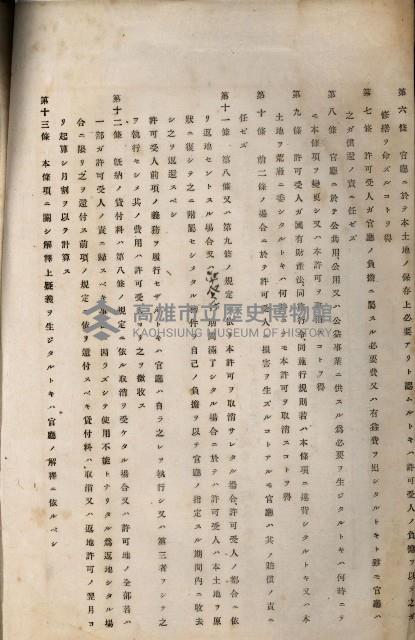 第六條 官廳ニ於テ本土地ノ保存上必要アリト認ムルトキハ許可受人ノ負擔ヲ以テ之ガ
修搭ヲ命ズルコトヲ得
第七條 許可受人ガ官廳ノ負擔ニ屬スル必要費又ハ有益費ヲ出シタルトキト雖モ官廳ハ
之ガ償還ノ責ニ任ゼズ
第八條 官廳ニ於テ公共用、公用又ハ公益事業ニ供スル爲必要ヲ生ジタルトキハ何時ニテ
モ本條項ヲ變更シ又ハ本許可ヲ取消スコトヲ得
第九條 許可受人ガ國有財產法、同施行令、同施行規則若ハ本條項ニ違背シタルトキ又ハ本
土地ヲ荒廢ニ委シタルトキハ何時ニテモ本許可ヲ取消スコトヲ得
第十條 前二條ノ場合ニ於テ許可受人ニ損害ヲ生ズルコトアルモ官廳ハ其ノ賠償ノ責ニ
任ゼズ
第十一條 第八條又ハ第九條ノ規定ニ依リ本許可ヲ取消サレタル場合、許可受人ノ都合ニ依
リ返地セントスル場合又ハ期間滿了シタル場合ニ於テハ許可受人ハ本土地ヲ原
狀ニ復シテ之ニ附屬セシタル物件ハ自己ノ負擔ヲ以テ官廳ノ指定スル期間內ニ收去
シ之ヲ返還スベシ
許可受人前項ノ義務ヲ履行セザルトキハ官廳ハ自ラ之レヲ執行シ又ハ第三者ヲシテ之
ヲ執行セシメ其ノ費用ハ許可受人ヨリ之ヲ徵收ス
第十二條 旣納ノ貸付料ハ第八條ノ規定ニ依ル取消ヲ受ケタル場合又ハ許可地ノ全部若ハ
一部ガ許可受人ノ責ニ歸スベキ事由ニ因ラズシテ使用不能トナリタル爲返地シタル場
合ニ限リ之ヲ還付ス前項ノ規定ニ依リ還付スベキ貸付料ハ取消又ハ返地許可ノ翌月ヨ
リ起算シ月割ヲ以テ計算ス
第十三條 本條項ニ關シ解釋上疑義ヲ生ジタルトキハ官廳ノ解釋ニ依ルベシ
高雄市立歷史博物館
KAOHSIUNG MUSEUM OF HISTORY